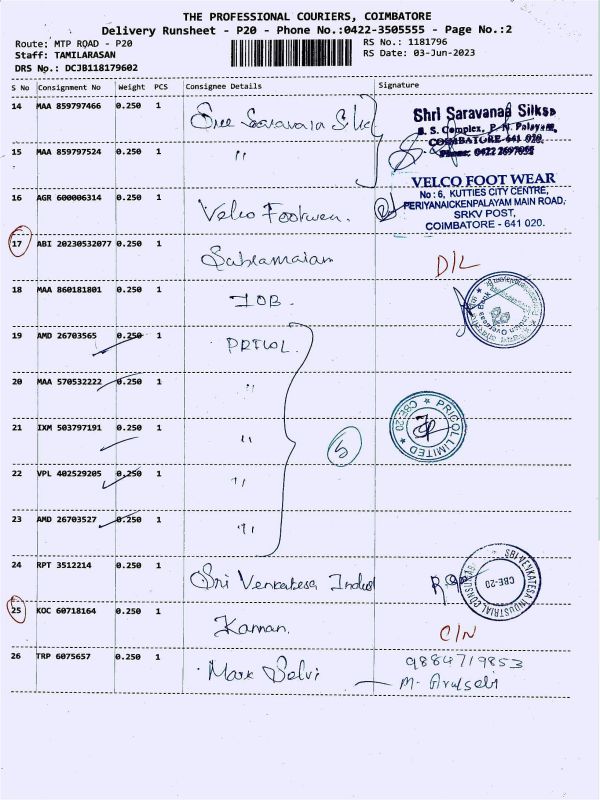 THE PROFESSIONAL COURIERS, COIMBATORE
Delivery Runsheet - P20 - Phone No.:0422-3505555 - Page No.:2
Route: MTP ROAD - P20 RS No.: 1181796
Staff: TAMILARASAN RS Date: 03-Jun-2023
DRS No.: DCJB118179602
S No Consignment No Weight PCS Consignee Details Signature
14 MAA 859797466 0.250 1 Sree Saravana Silks
Shri Saravanaa Silks
S. S. Complex, P. N. Palayam,
COIMBATORE-641 020.
Phone: 0422 2697052
15 MAA 859797524 0.250 1 "
16 AGR 600006314 0.250 1 Velco Footwear.
VELCO FOOT WEAR
No : 6, KUTTIES CITY CENTRE,
PERIYANAICKENPALAYAM MAIN ROAD,
SRKV POST,
COIMBATORE - 641 020.
17 ABI 20230532077 0.250 1 D/L
18 MAA 860181801 0.250 1 IOB.
Indian Overseas Bank
19 AMD 26703565 0.250 1 PRICOL.
20 MAA 570532222 0.250 1 "
21 IXM 503797191 0.250 1 " 5
PRICOL LIMITED ★ CBE-20 ★
22 VPL 402529205 0.250 1 "
23 AMD 26703527 0.250 1 "
24 RPT 3512214 0.250 1 Sri Venkatesa Indust
SRI VENKATESA INDUSTRIAL CONSUMABLES
CBE-20
25 KOC 60718164 0.250 1 Kannan. C/N
26 TRP 6075657 0.250 1 Marx Selvi 9884719853
M. Arulselvi